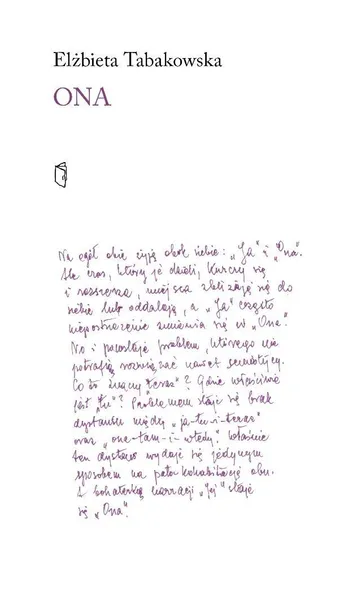 Elżbieta Tabakowska
ONA
Na ogół obie żyją obok siebie: „Ja” i „Ona”.
Ale czas, który je dzieli, kurczy się
i rozszerza, miejsca zbliżają się do
siebie lub oddalają, a „Ja” często
niepostrzeżenie zmienia się w „Ona”.
No i powstaje problem, którego nie
potrafią rozwiązać nawet semiotycy.
Co to znaczy „teraz”? Gdzie właściwie
jest „tu”? Problemem staje się brak
dystansu między „ja-tu-i-teraz”
oraz „one-tam-i-wtedy”. Właśnie
ten dystans wydaje się jedynym
sposobem na kohabitację obu.
A bohaterką narracji „jej” staje
się „Ona”.